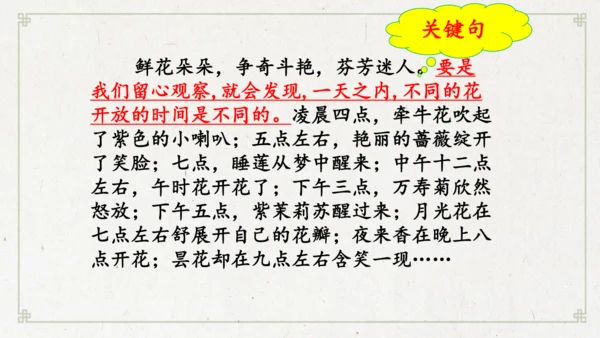 关键句
鲜花朵朵，争奇斗艳，芬芳迷人。要是
我们留心观察，就会发现，一天之内，不同的花
开放的时间是不同的。凌晨四点，牵牛花吹起
了紫色的小喇叭；五点左右，艳丽的蔷薇绽开
了笑脸；七点，睡莲从梦中醒来；中午十二点
左右，午时花开花了；下午三点，万寿菊欣然
怒放；下午五点，紫茉莉苏醒过来；月光花在
七点左右舒展开自己的花瓣；夜来香在晚上八
点开花；昙花却在九点左右含笑一现……